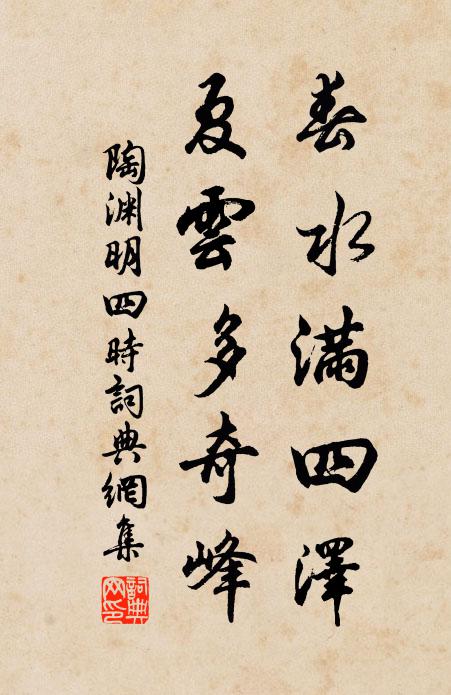 春水滿四澤
夏雲多奇峰
陶渊明四時詞典網集
詞典網印